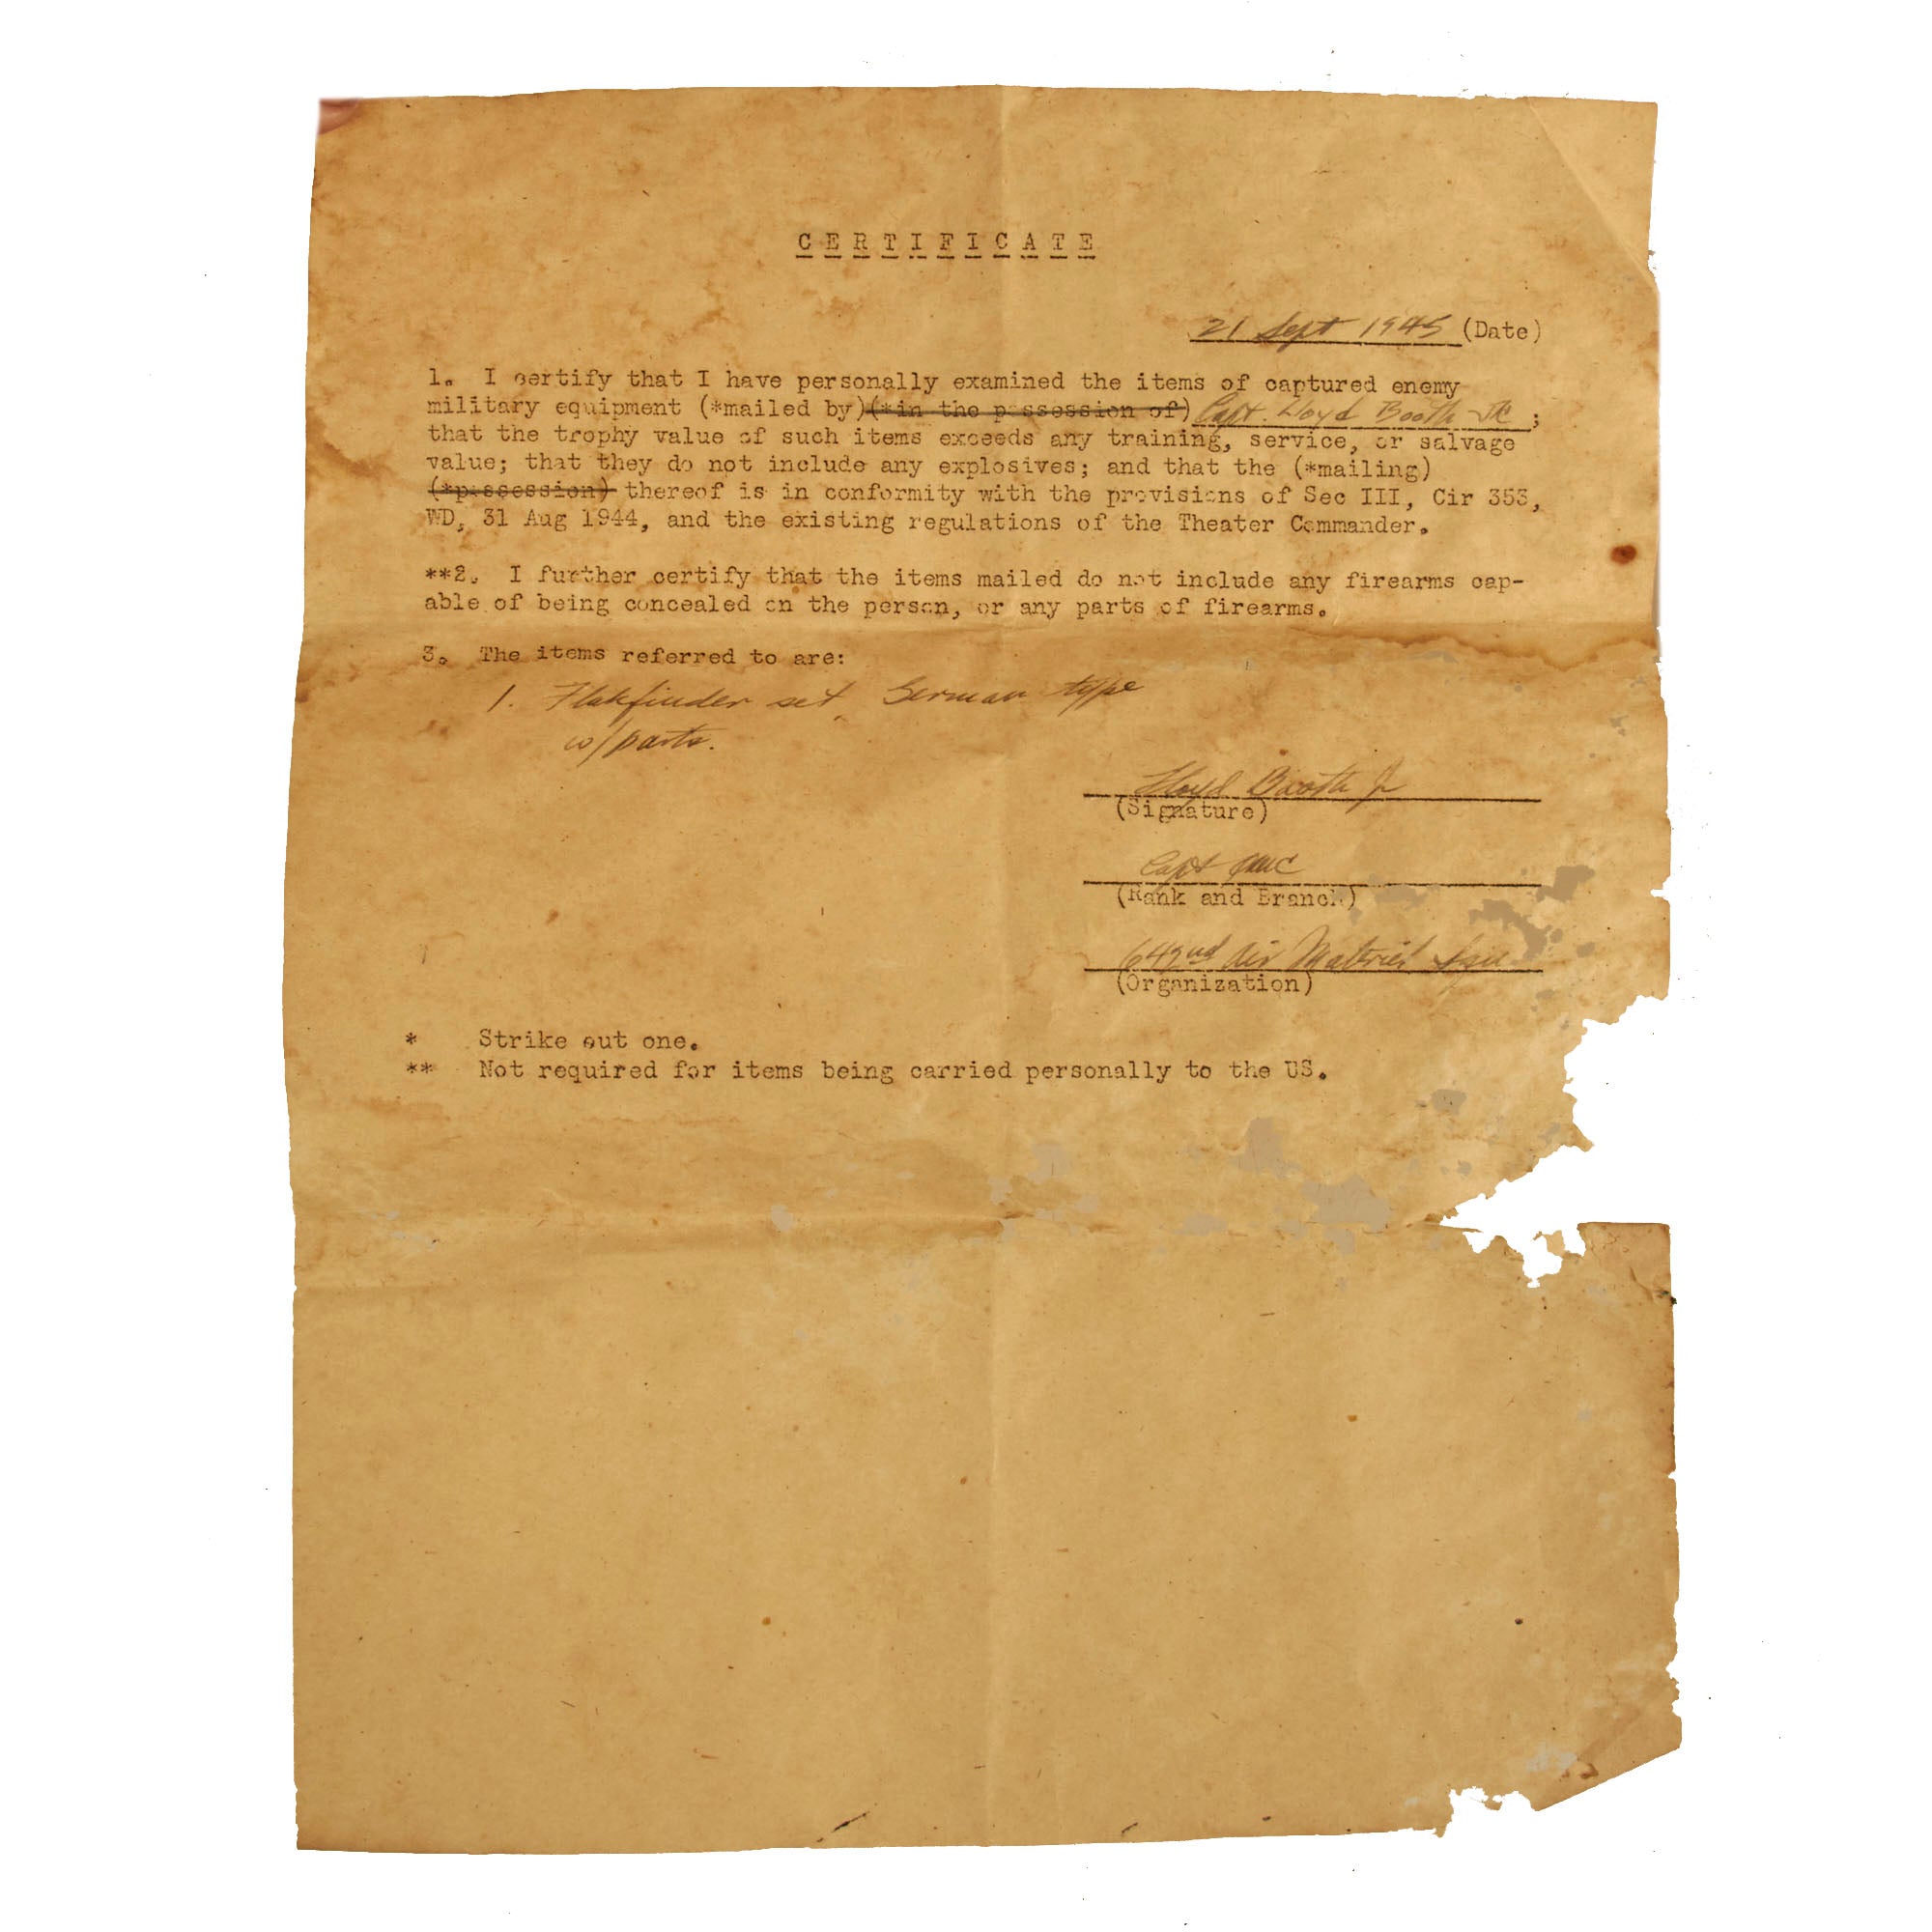 CERTIFICATE
21 Sept 1945 (Date)
1. I certify that I have personally examined the items of captured enemy
military equipment (*mailed by)(*in the possession of) Capt. Lloyd Booth Jr ;
that the trophy value of such items exceeds any training, service, or salvage
value; that they do not include any explosives; and that the (*mailing)
(*possession) thereof is in conformity with the provisions of Sec III, Cir 353,
WD, 31 Aug 1944, and the existing regulations of the Theater Commander.
**2. I further certify that the items mailed do not include any firearms cap-
able of being concealed on the person, or any parts of firearms.
3. The items referred to are:
1. Flakfinder set, German type
w/parts.
Lloyd Booth Jr
(Signature)
Capt QMC
(Rank and Branch)
642nd Air Matriel Squ
(Organization)
* Strike out one.
** Not required for items being carried personally to the US.